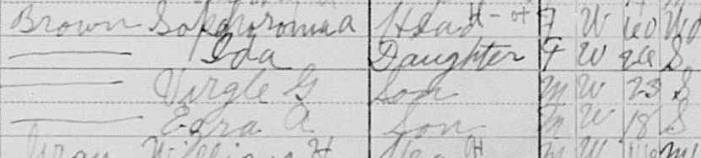 Brown Sophroromia Head H-ot F W 60 Wd
Ida Daughter F W 26 S
Virgle G Son M W 23 S
Ezra A Son M W 18 S
William H Head H M W M